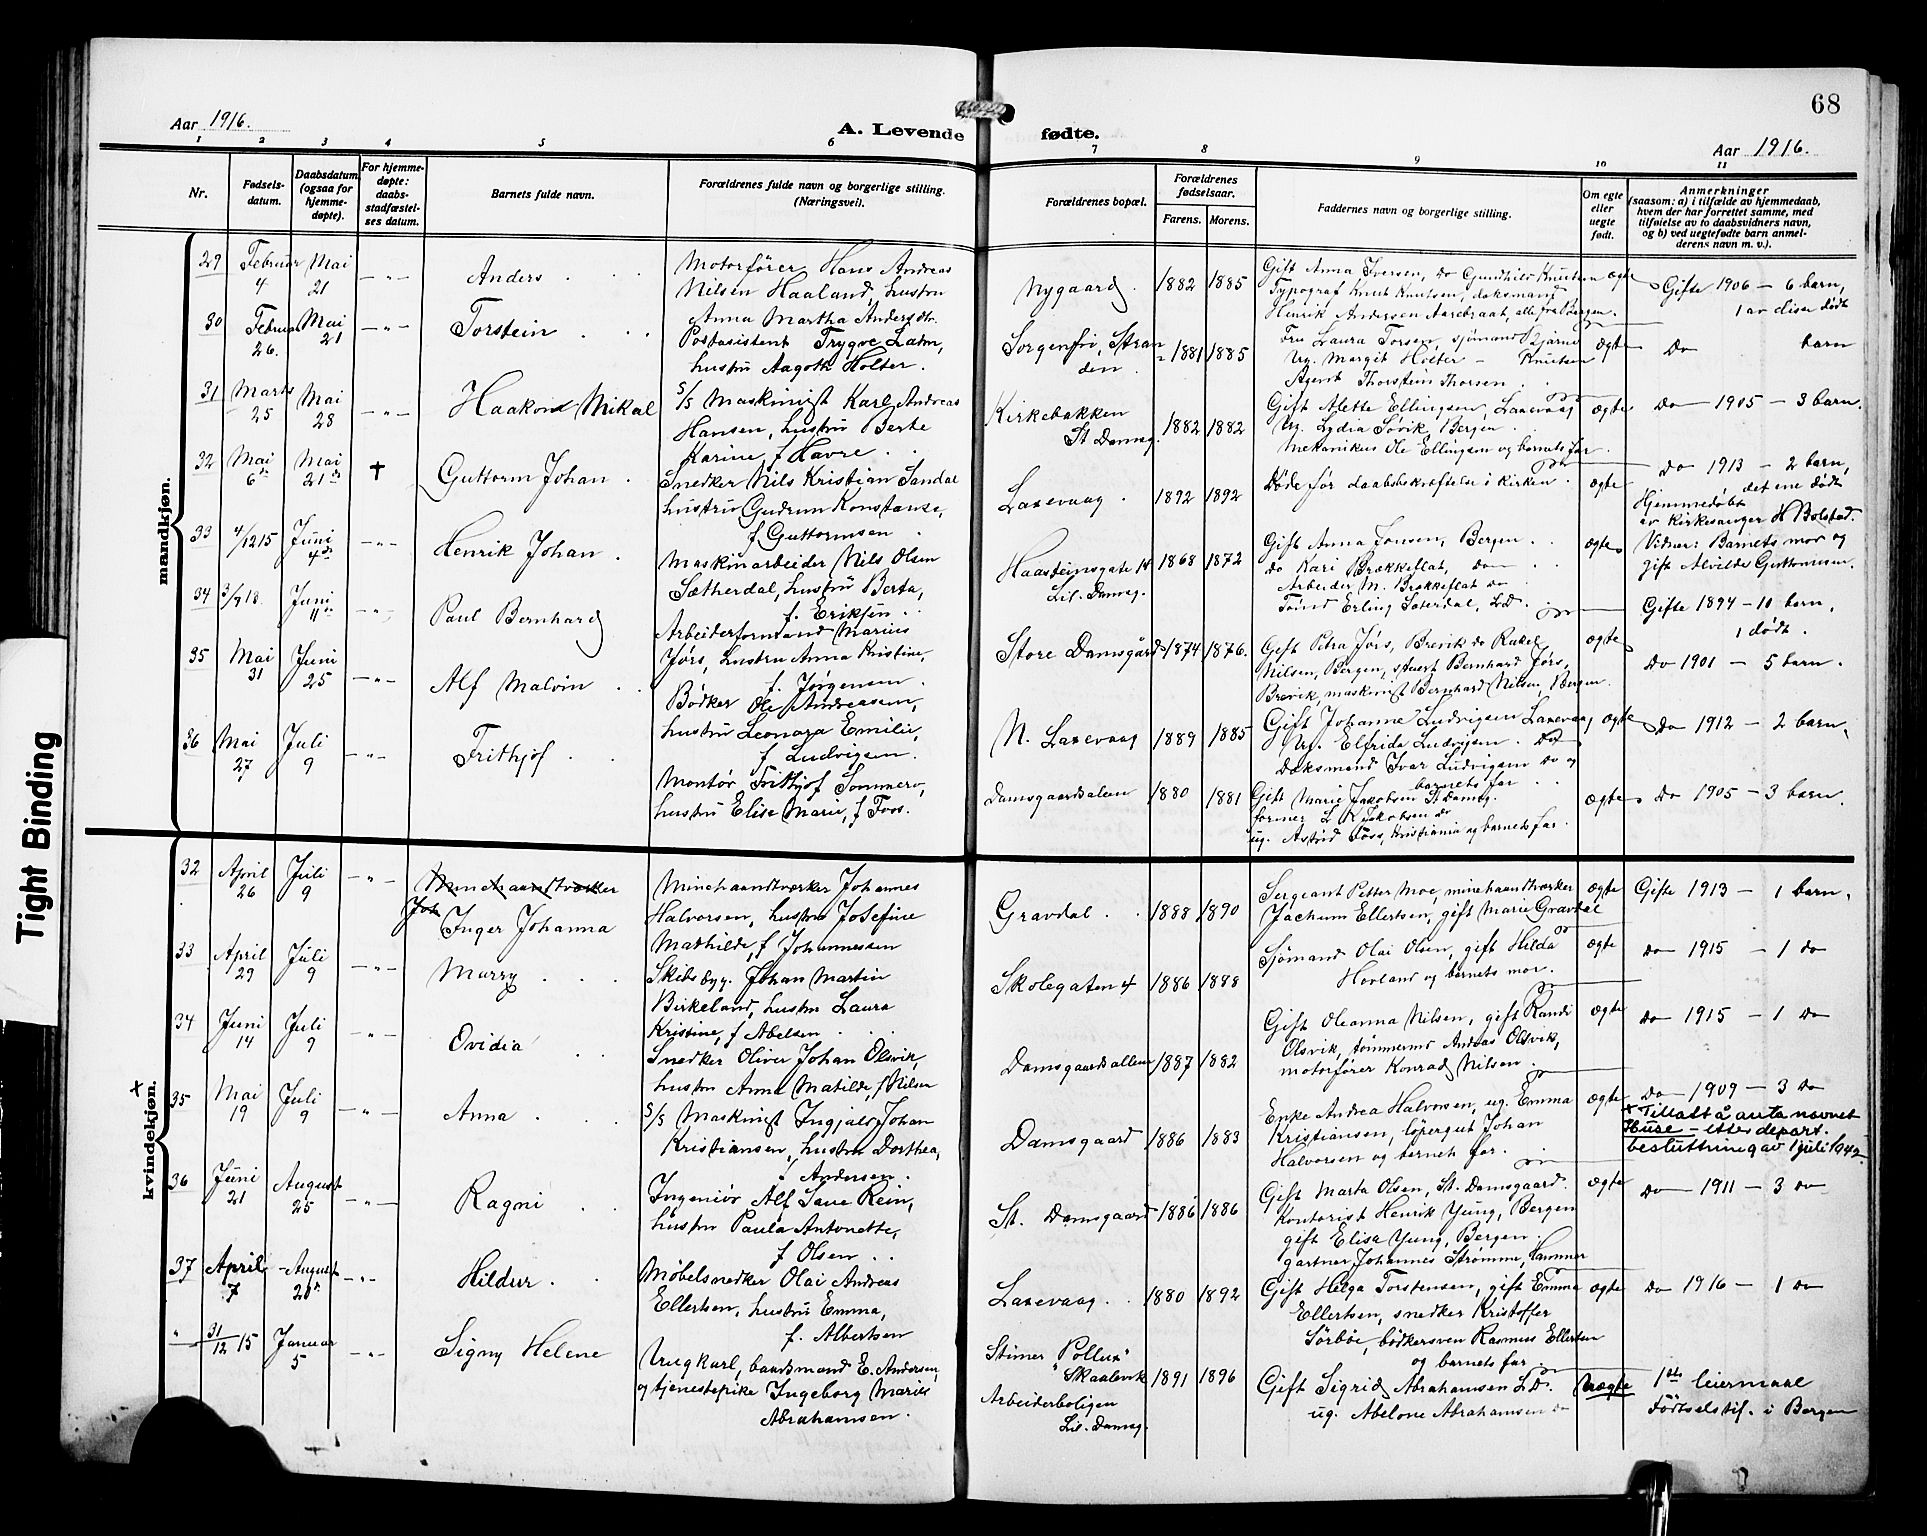 68
Aar 1916.
A. Levende fødte.
Aar 1916.
1 2 3 4 5 6 7 8 9 10 11
Nr.
Fødsels-
datum.
Daabsdatum
(ogsaa for
hjemme-
døpte).
For hjemme-
døpte:
daabs-
stadfæstel-
ses datum.
Barnets fulde navn.
Forældrenes fulde navn og borgerlige stilling.
(Næringsvei).
Forældrenes bopæl.
Forældrenes
fødselsaar.
Farens. Morens.
Faddernes navn og borgerlige stilling.
Om egte
eller
uegte
født.
Anmerkninger
(saasom: a) i tilfælde av hjemmedaab,
hvem der har forrettet samme, med
tilføielse av to daabsvidners navn,
og b) ved uegtefødte barn anmel-
derens navn m. v.).
mandkjøn.
29 Februar 4 Mai 21 —"— Anders
Motorfører Hans Andreas
Nilsen Haaland, hustru
Anna Martha Andersdtr.
Nygaard. 1882 1885
Gift Anna Iversen, do Gundhild Knutsen
Typograf Knut Knutsen, dæksmand
Henrik Andersen Aarebraat, alle fra Bergen.
ægte
Gifte 1906 — 6 barn,
1 av disse dødt
30 Februar 26. Mai 21 —"— Torstein
Postasistent Trygve Lahn,
hustru Aagoth Holter.
Sorgenfri, Stran
den. 1881 1885
Fru Laura Torsen, sjømand Bjarne
Ug. Margit Holter — Knutsen
Agent Thorstein Thorsen
ægte
Do barn
31 Marts 25 Mai 28 —"— Haakon Mikal
S/S Maskinist Karl Andreas
Hansen, hustru Berte
Karine f. Havre.
Kirkebakken
St. Damsg. 1882 1882
Gift Alette Ellingsen, Laxevaag
Ug. Lydia Søvik, Bergen
Mekaniker Ole Ellingsen og barnets far.
ægte
Do 1905 — 3 barn.
32 Mai 6te Mai 21de † Guttorm Johan
Snedker Nils Kristian Sandal
hustru Gudrun Konstanse,
f Guttormsen
Laxevaag. 1892 1892
Døde før daabsbekræftelse i kirken
ægte
Do 1913 — 2 barn,
det ene dødt
Hjemmedøbt
av kirkesanger H Bolstad.
Vidner: Barnets mor og
gift Alvilde Guttormsen.
33 4/12 15 Juni 4de —"— Henrik Johan
Maskinarbeider Nils Olsen
Sætherdal, hustru Berta,
f. Eriksen
Haasteinsgate 14
Lil. Damsg. 1868 1872
Gift Anna Jonsen, Bergen
do Kari Brækkeflat, do
Arbeider M. Brækkeflat do
Tønd Erling Sæterdal, L.D.
ægte
Gifte 1894 — 10 barn,
1 dødt.
34 Juni 11te —"— Paul Bernhard
Arbeiderformand Marius
Jørs, hustru Anna Kristine,
f. Jørgensen
Store Damsgård 1874 1876.
Gift Petra Jørs, Brevik do Rakel
Nilsen, Bergen, Bernhard Jørs,
Brevik, maskinist Bernhard Nilsen, Bergen.
ægte
Do 1901 — 5 barn.
35 Mai 31 Juni 25 —"— Alf Malvin
Bødker Ole Andreasen,
hustru Leonora Emilie,
f Ludvigsen
N. Laxevaag 1889 1885
Gift Johanne Ludvigsen Laxevaag
Ug. Elfrida Ludvigsen. Do
Dæksmand Ivar Ludvigsen do og
barnets far
ægte
Do 1912 — 2 barn.
36 Mai 27 Juli 9 —"— Frithjof
Montør Frithjof Sommero,
hustru Elise Marie, f Foss.
Damsgaardsalleen 1880 1881
Gift Marie Jakobsen St Damsg.
former L K Jakobsen do
ug. Astrid Foss, Kristiania og barnets far.
ægte
Do 1905 — 3 barn.
kvindekjøn.
32 April 26 Juli 9 —"— Minehaandtværker
Joh Inger Johanna
Minehaandtværker Johannes
Halvorsen, hustru Josefine
Mathilde, f Johannessen
Gravdal 1888 1890
Sergeant Petter Moe, minehaandtværker
Jachum Ellertsen, gift Marie Gravdal
ægte
Gifte 1913 — 1 barn.
33 April 29 Juli 9 —"— Marry
Skibsbyg. Johan Martin
Birkeland, hustru Laura
Kristine, f Abelsen
Skolegaten 4 1886 1888
Sjømand Olai Olsen, gift Hilda
Hovland og barnets mor.
ægte
do 1915 — 1 do
34 Juni 14 Juli 9 —"— Ovidia
Snedker Oliver Johan Olsvik,
hustru Anna Matilde, f Nilsen
Damsgaardsalleen 1887 1882
Gift Oleanna Nilsen, gift Randi
Olsvik, tømmermd Andreas Olsvik,
motorfører Konrad Nilsen
ægte
do 1915 — 1 do
x
35 Mai 19 Juli 9 —"— Anna
S/S Maskinist Ingjald Johan
Kristiansen, hustru Dorthea,
f Andersen
Damsgaard 1886 1883
Enke Andrea Halvorsen, ug. Emma
Kristiansen, løpergut Johan
Halvorsen og barnets far.
ægte
Do 1909 — 3 do
x Tillatt å anta navnet
Huse — etter depart.
beslutning av 1 juli 1942.
36 Juni 21 August 25 —"— Ragni
Ingeniør Alf Lane Rein,
hustru Paula Antonette,
f Olsen
St. Damsgaard 1886 1886
Gift Marta Olsen, St. Damsgaard.
Kontorist Henrik Yung, Bergen
gift Elisa Yung, Bergen
gartner Johannes Strømme, Hammer
ægte
Do 1911 — 3 do
37 April 7 August —"— Hildur
Møbelsnedker Olai Andreas
Ellertsen, hustru Emma,
f. Albertsen
Laxevaag 1880 1892
Gift Helga Torstensen, gift Emma
Ellertsen, snedker Kristoffer
Sørbøe, bødkersven Rasmus Ellertsen
og barnets far
ægte
Do 1916 — 1 do
" 31/12 15 Januar 5 —"— Signy Helene
Ungkarl, baadsmand E. Andersen,
og tjenestepike Ingeborg Marie
Abrahamsen.
Stimer "Pollux"
Skaalevik
Arbeiderboligen
Lil. Damsg. 1891 1896
Gift Sigrid Abrahamsen L.D.
ug. Abelone Abrahamsen do
Uægte
1ste leiermaal
Fødselstif. i Bergen
Tight Binding